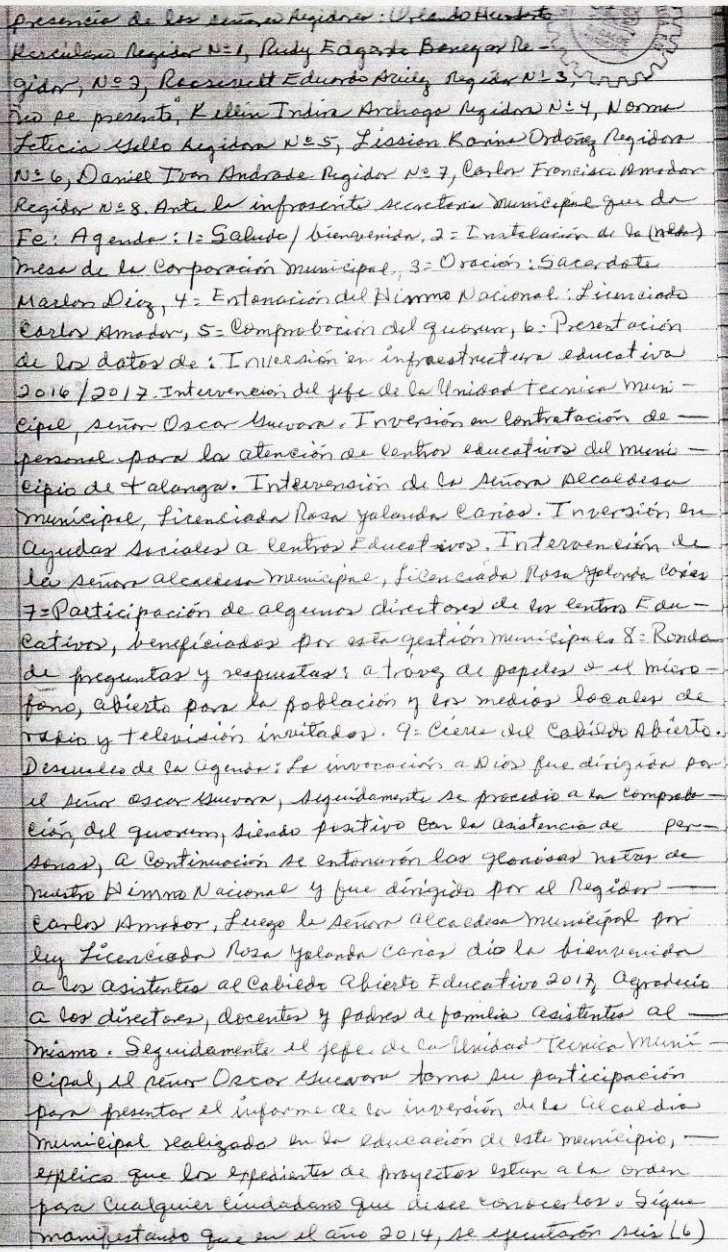 presencia de los señores Regidores: Orlando Humberto
Herculano Regidor Nº 1, Rudy Edgardo Banegas Re-
gidor, Nº 2, Roosevelt Eduardo Regidor Nº 3,
no se presento, Kellin Indira Archaga Regidora Nº 4, Norma
Leticia Regidora Nº 5, Lission Karina Ordoñez Regidora
Nº 6, Daniel Ivan Andrade Regidor Nº 7, Carlos Francisco Amador
Regidor Nº 8. Ante la infrascrita secretaria municipal que da
Fe: Agenda: 1= Saludo/bienvenida, 2= Instalación de la
mesa de la Corporación municipal, 3= Oración: Sacerdote
Marlon Díaz, 4= Entonación del Himno Nacional: Licenciado
Carlos Amador, 5= Comprobación del quorum, 6= Presentación
de los datos de: Inversión en infraestructura educativa
2016/2017. Intervención del jefe de la Unidad Tecnica Muni-
cipal, señor Oscar Guevara. Inversión en contratación de —
personal para la atención de centros educativos del muni-
cipio de talanga. Intervensión de la señora Alcaldesa
municipal, Licenciada Rosa Yolanda Carias. Inversión en
ayudas Sociales a Centros Educativos. Intervención de
la señora alcaldesa municipal, Licenciada Rosa Yolanda Carias
7= Participación de algunos directores de los centros Edu-
cativos, beneficiados por esta gestión municipal 8= Ronda
de preguntas y respuestas: a travez de papeles o el micro-
fono, abierto para la población y los medios locales de
radio y televisión invitados. 9= Cierre del Cabildo Abierto.
Desarrollo de la agenda: La invocación a Dios fue dirigida por
el señor Oscar Guevara, seguidamente se procedio a la comproba-
ción, del quorum, siendo positivo con la asistencia de per-
sonas, a continuación se entonarón las gloriosas notas de
nuestro Himno Nacional y fue dirigido por el Regidor —
Carlos Amador, Luego la señora alcaldesa municipal por
ley Licenciada Rosa Yolanda Carias dio la bienvenida
a los asistentes al Cabildo Abierto Educativo 2017, Agradecio
a los directores, docentes y padres de familia asistentes al —
mismo. Seguidamente el jefe de la Unidad Tecnica Muni-
cipal, el señor Oscar Guevara toma su participación
para presentar el informe de la inversión de la Alcaldia
municipal realizada en la educación de este municipio, —
explico que los expedientes de proyectos estan a la orden
para cualquier ciudadano que desee conocerlos. Sigue
manifestando que en el año 2014, se ejecutarón seis (6)